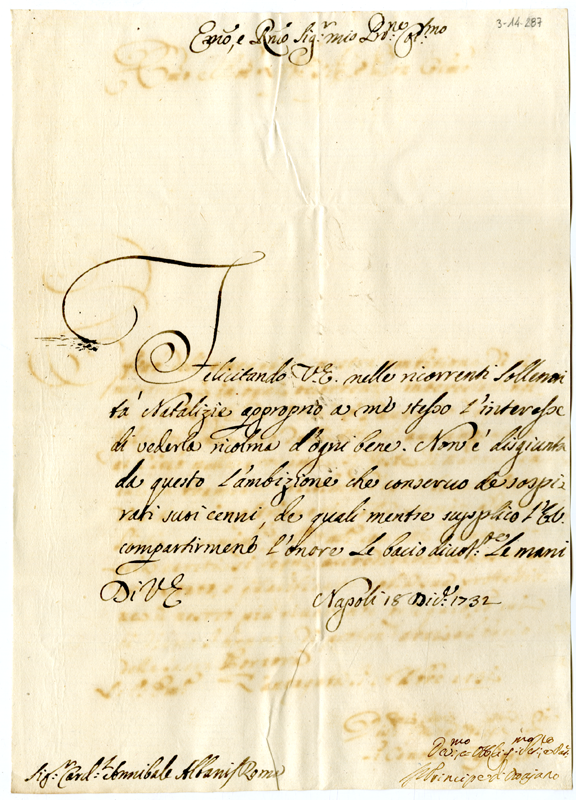 3-14-287
Em̃o, e Rm̃o Sig.r mio P̃ne Col.mo
Felicitando V.E. nelle ricorrenti Sollenni
tà Natalizie approprio a mè stesso l'interesse
di vederla ricolma d'ogni bene. Non è disgiunta
da questo l'ambizione che conservo de sospi
rati suoi cenni, de quali mentre supplico l'E.V.
compartirmene l'onore Le bacio divot.te Le mani
Di V E Napoli 18 Dic.e 1732
Sig.r Card.l Annibale Albani Roma
Principe di Ottajano